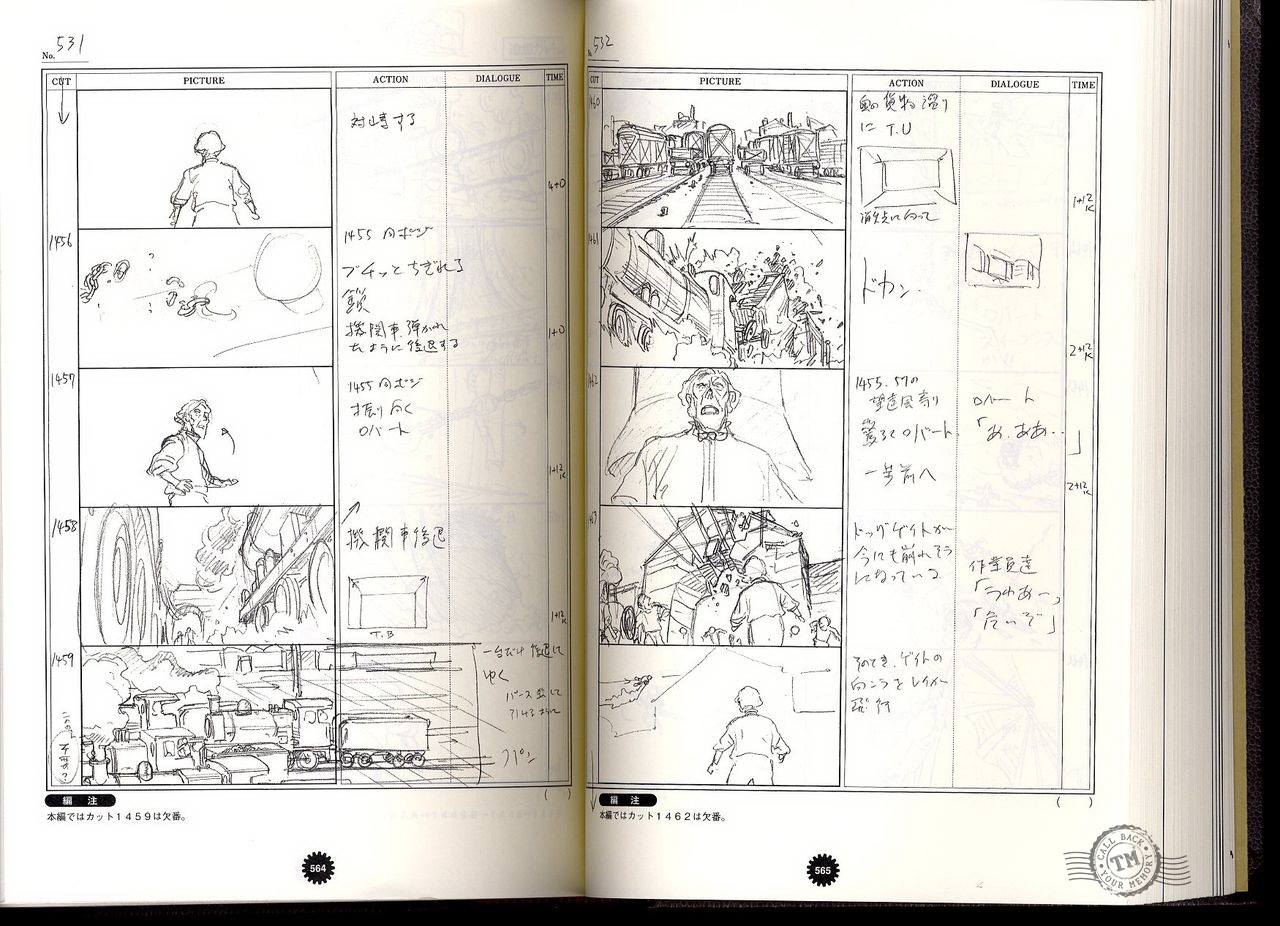 No. 531
CUT
PICTURE
ACTION
DIALOGUE
TIME
対峙する
4+0
1456
1455 同ポジ
ブチッとちぎれる
鎖
機関車、弾かれ
たように後退する
1+0
1457
1455 同ポジ
振り向く
ロバート
1+12K
1458
機関車後退
T.B
1+12K
1459
一台だけ後退して
ゆく
編 注
本編ではカット1459は欠番。
564
532
CUT
PICTURE
ACTION
DIALOGUE
TIME
1460
奥の貨物溜り
に T.U
消失点に向って
1+12K
1461
ドカン
2+12K
1462
1455.57の
望遠風寄り
驚くロバート
一歩前へ
ロバート
「あ、ああ‥」
2+12K
ドックゲイトが
今にも崩れそう
になっている
作業員達
「うわあー」
「危いぞ」
そのとき、ゲイトの
向こうをレイが
飛行
編 注
本編ではカット1462は欠番。
565
CALL BACK
TM
YOUR MEMORY